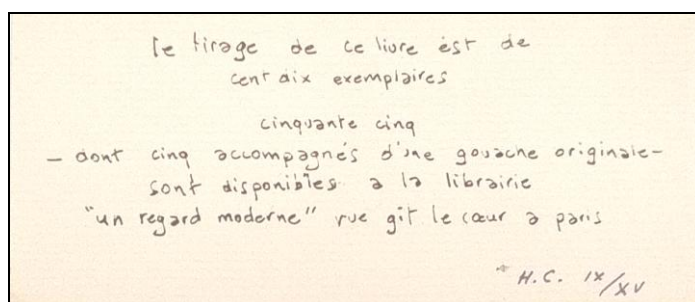 le tirage de ce livre est de
cent dix exemplaires
cinquante cinq
— dont cinq accompagnés d'une gouache originale —
sont disponibles a la librairie
"un regard moderne" rue gît le cœur a paris
H.C. IX/XV